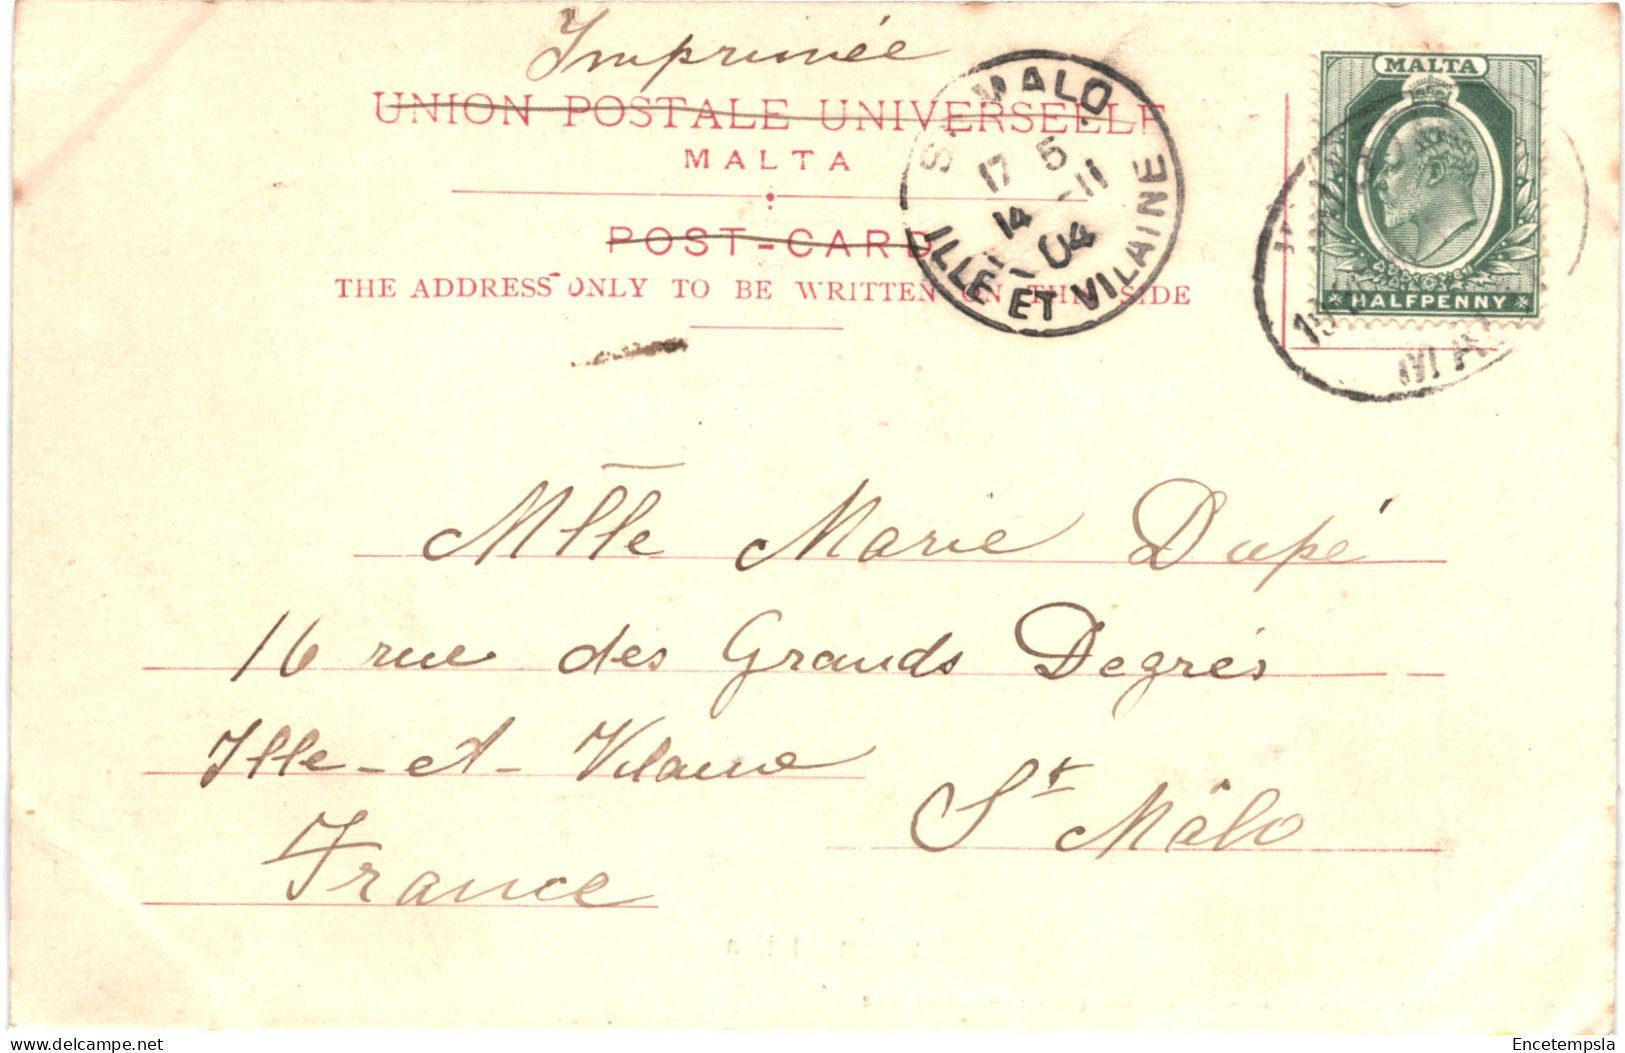 Imprimée
UNION POSTALE UNIVERSELLE
MALTA
POST-CARD
THE ADDRESS ONLY TO BE WRITTEN ON THIS SIDE
ST. MALO
17 5
14 -11
04
ILLE ET VILAINE
MALTA
HALFPENNY
Mlle Marie Dupé
16 rue des Grands Degrés
Ille-et-Vilaine
St Mâlo
France
Encetempsla